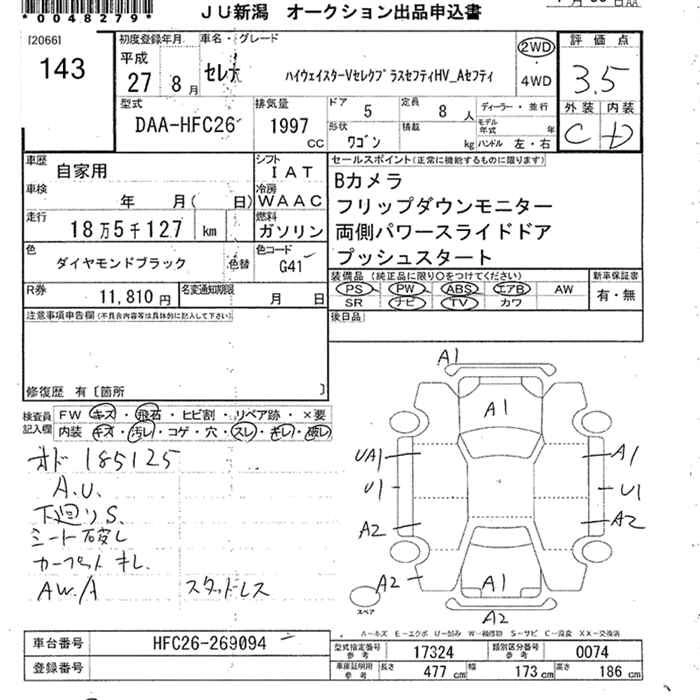 *0048279*
JU新潟 オークション出品申込書
[2066]
143
初度登録年月 車名・グレード
平成
27 8月
セレナ ハイウェイスターVセレクプラスセフティHV_Aセフティ
2WD
・
4WD
評価点
3.5
外装 内装
C D
型式
DAA-HFC26
排気量
1997 CC
ドア 5
定員 8人
形状 ワゴン
積載 kg
ディーラー・並行
モデル年式 年
ハンドル 左・右
車歴 自家用
シフト IAT
車検 年 月( 日)
冷房 WAAC
走行 18万5千127 km
燃料 ガソリン
色 ダイヤモンドブラック 色替
色コード G41
R券 11,810円
名変通知期限 月 日
セールスポイント(正常に機能するものに限ります)
Bカメラ
フリップダウンモニター
両側パワースライドドア
プッシュスタート
装備品(純正品に限り○をつけてください)
PS PW ABS エアB AW
SR ナビ TV カワ
新車保証書
有・無
後日品
注意事項申告欄(不具合内容等は具体的に記入して下さい)
修復歴 有〔箇所 〕
検査員記入欄
FW キズ・飛石・ヒビ割・リペア跡・×要
内装 キズ・汚レ・コゲ・穴・スレ・キレ・破レ
オド 185125
A.U.
下廻りS.
シート破レ
カーペットキレ.
AW.A スタッドレス
A1
A1
UA1 A1
U1 U1
A2 A2
A2 A1
A2
スペア
A-キズ E-エクボ U-凹み W-補修跡 S-サビ C-腐食 XX-交換済
車台番号 HFC26-269094
登録番号
型式指定番号 参考 17324
類別区分番号 参考 0074
車庫証明用 参考 長さ 477cm 幅 173cm 高さ 186cm